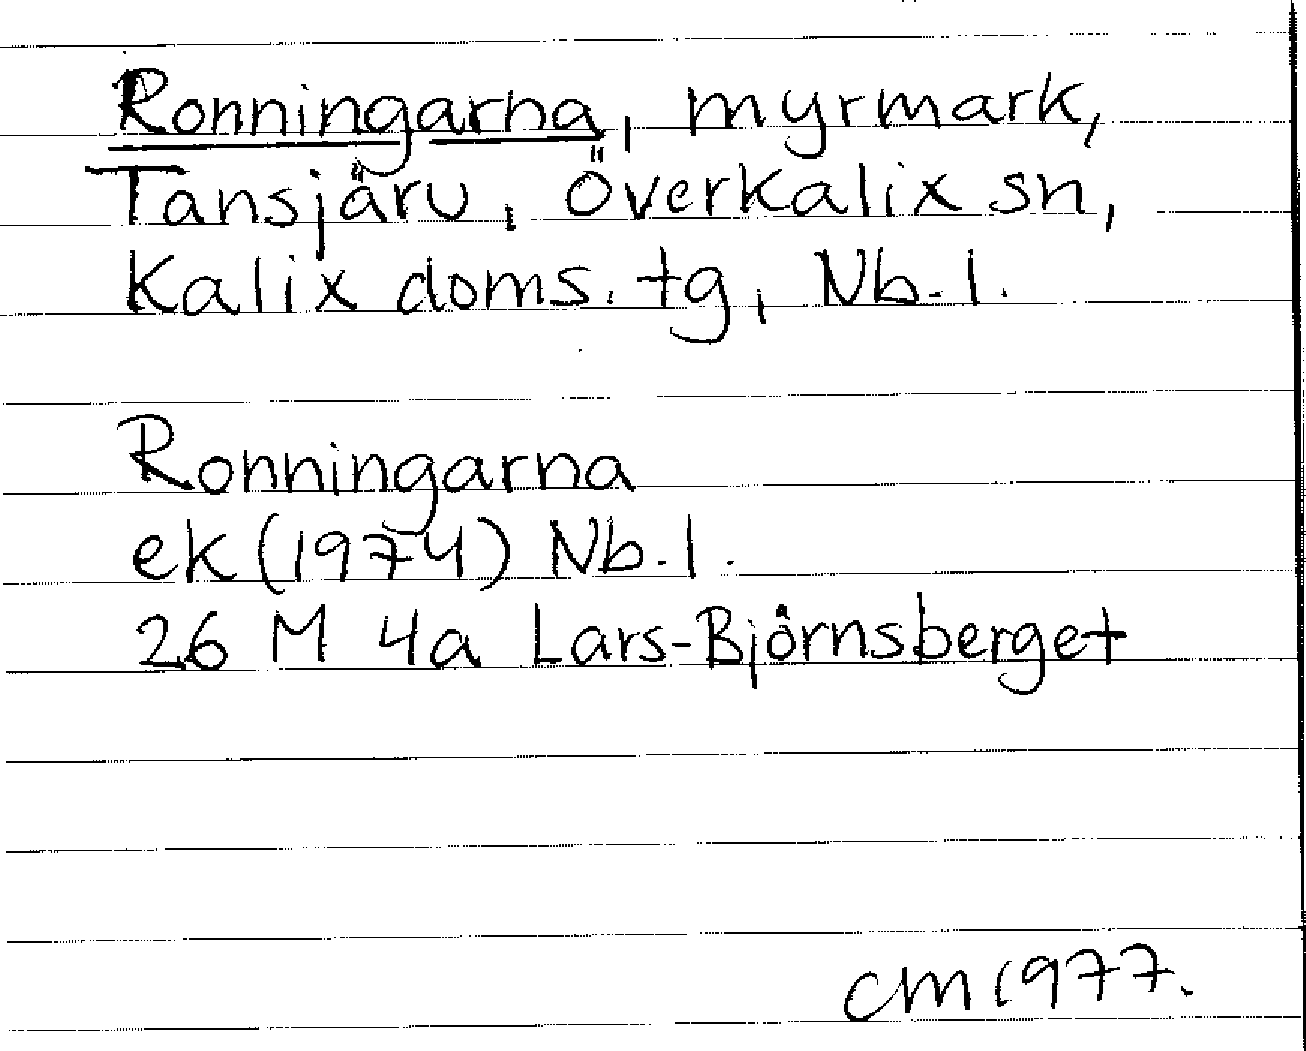 Ronningarna, myrmark,
Tansjärv, Överkalix sn,
Kalix doms. tg, Nb. l.
Ronningarna
ek (1974) Nb. l.
26 M 4a Lars-Björnsberget
CM 1977.